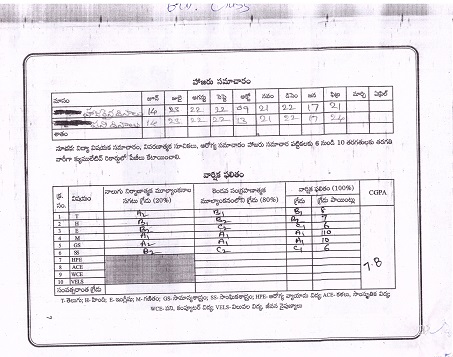 హాజరు సమాచారం
మాసం జూన్ జులై ఆగష్టు సెప్టె అక్టో నవం డిసెం జన ఫిబ్ర మార్చి ఏప్రిల్
14 23 22 22 09 21 22 17 21
14 23 22 22 13 21 22 17 24
శాతం
నూతన విద్యా విషయక సమాచారం, వివరణాత్మక సూచికలు, ఆరోగ్య సమాచారం హాజరు సమాచార పట్టికలకు 6 నుండి 10 తరగతులకు తరగతి
వారీగా క్యుములేటివ్ రికార్డులో పేజీలు కేటాయించాలి.
వార్షిక ఫలితం
క్ర. సం. విషయం నాలుగు నిర్మాణాత్మక మూల్యాంకనాల సగటు గ్రేడు (20%) రెండవ సంగ్రహణాత్మక మూల్యాంకనంలోని గ్రేడు (80%) వార్షిక ఫలితం (100%) CGPA
గ్రేడు గ్రేడు పాయింట్లు
1 T A2 B1 B1 8
2 H B1 B2 B2 7
3 E B1 C2 C1 6
4 M A1 A1 A1 10
5 GS A2 A1 A1 10
6 SS B2 C2 C1 6
7.8
7 HPE
8 ACE
9 WCE
10 VELS
సంవత్సరాంత గ్రేడు
T-తెలుగు; H-హిందీ; E-ఇంగ్లీషు; M-గణితం; GS-సామాన్యశాస్త్రం; SS-సాంఘికశాస్త్రం; HPE-ఆరోగ్య వ్యాయామ విద్య; ACE-కళలు, సాంస్కృతిక విద్య
WCE-పని, కంప్యూటర్ విద్య; VELS-విలువల విద్య, జీవన నైపుణ్యాలు